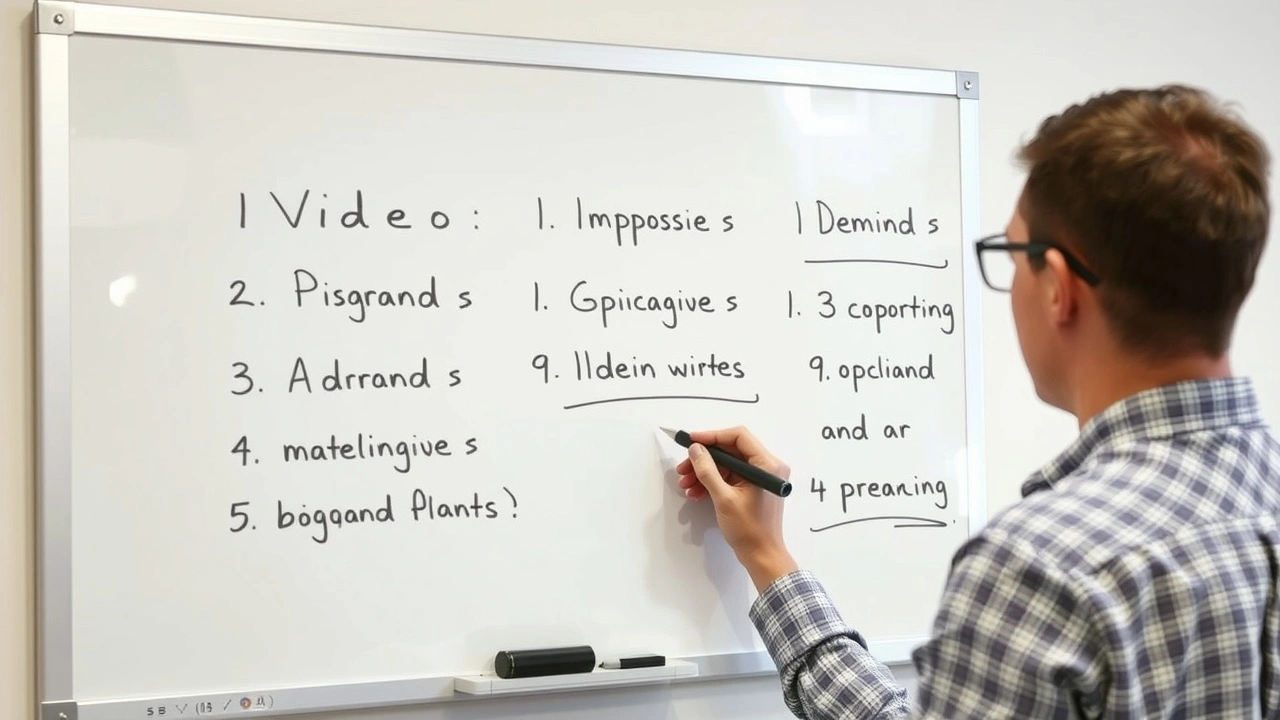 1 Video:
2. Pisgrand s
3. Adrrand s
4. matelingive s
5. boggand Plants?
1. Imppossie s
1. Gpiicagive s
9. Ildein wirtes
1 Demind s
1. 3 coporting
9. opcliand
and ar
4 preaning